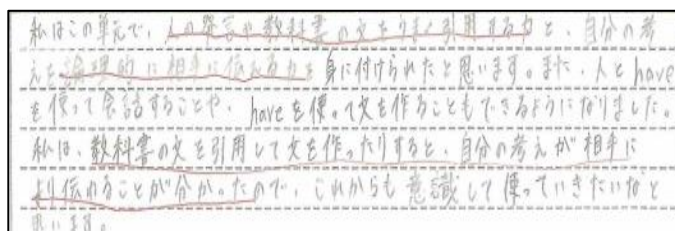 私はこの単元で、人の発言や教科書の文をうまく引用する力と、自分の考
えを論理的に相手に伝える力を身に付けられたと思います。また、人とhave
を使って会話することや、haveを使って文を作ることもできるようになりました。
私は、教科書の文を引用して文を作ったりすると、自分の考えが相手に
より伝わることが分かったので、これからも意識して使っていきたいなと
思います。